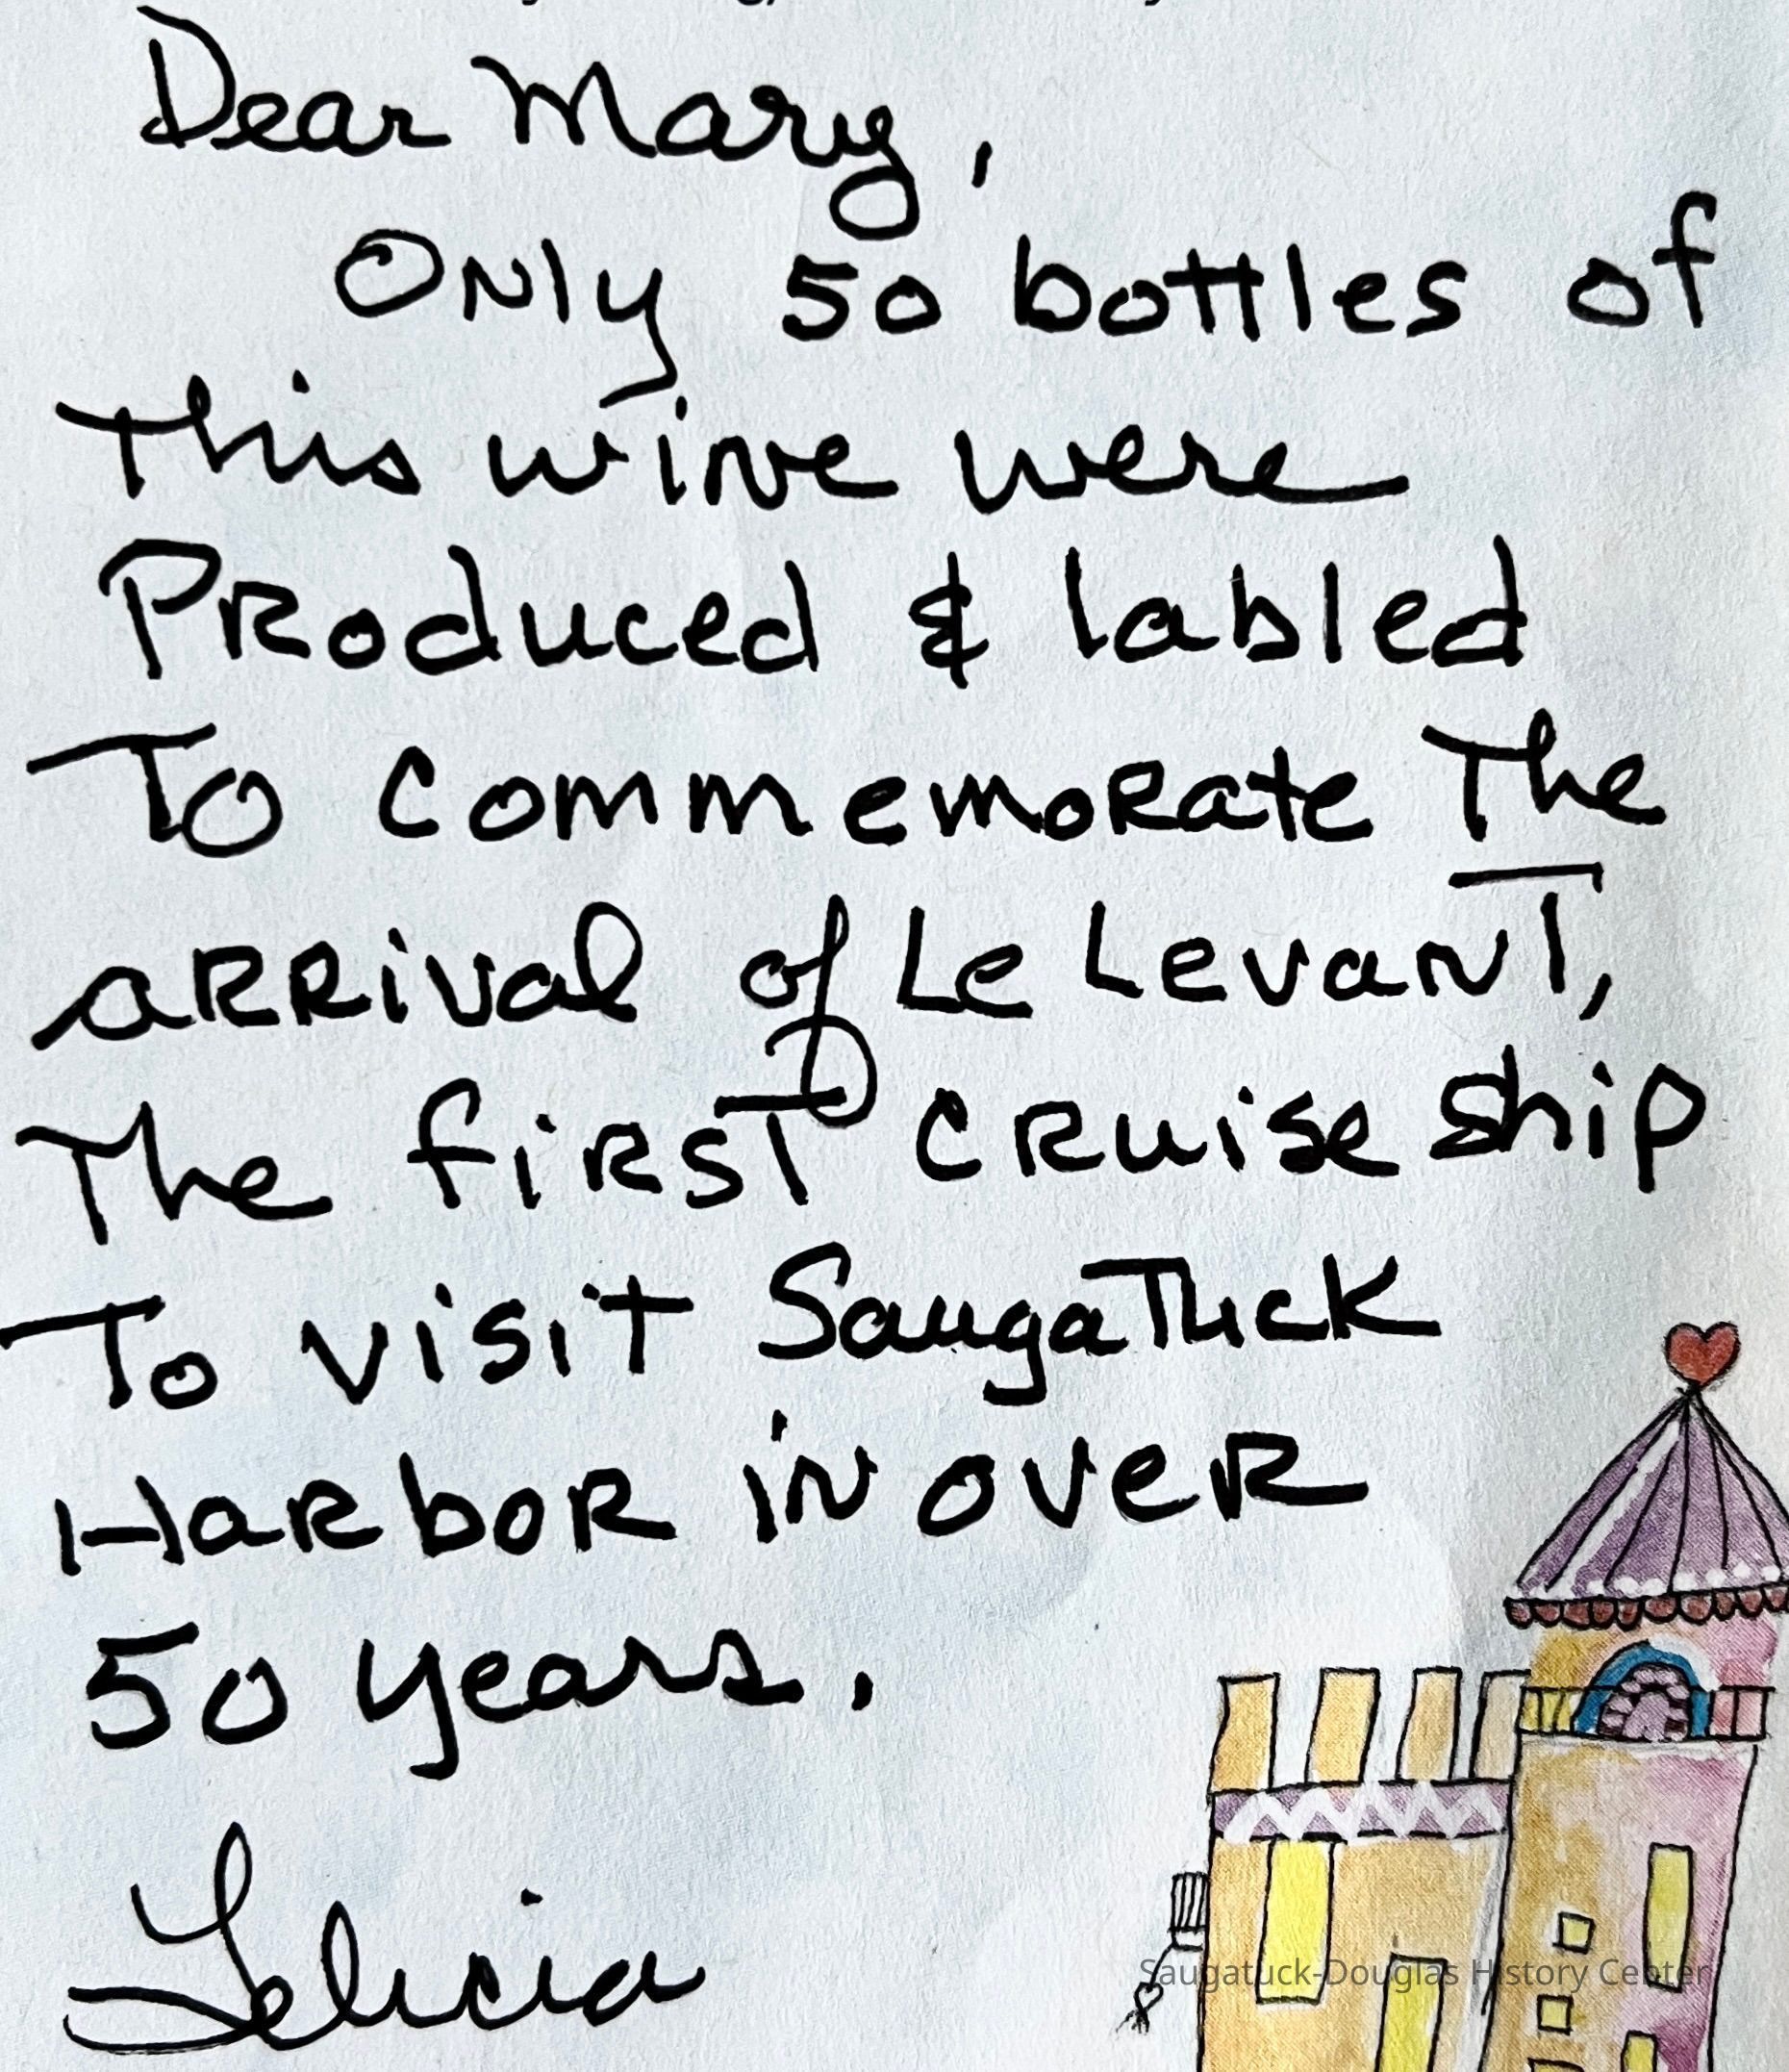 Dear Mary,
Only 50 bottles of
this wine were
Produced & labled
To commemorate The
arrival of Le Levant,
The first cruise ship
To visit Saugatuck
Harbor in over
50 years.
Felicia
Saugatuck-Douglas History Center